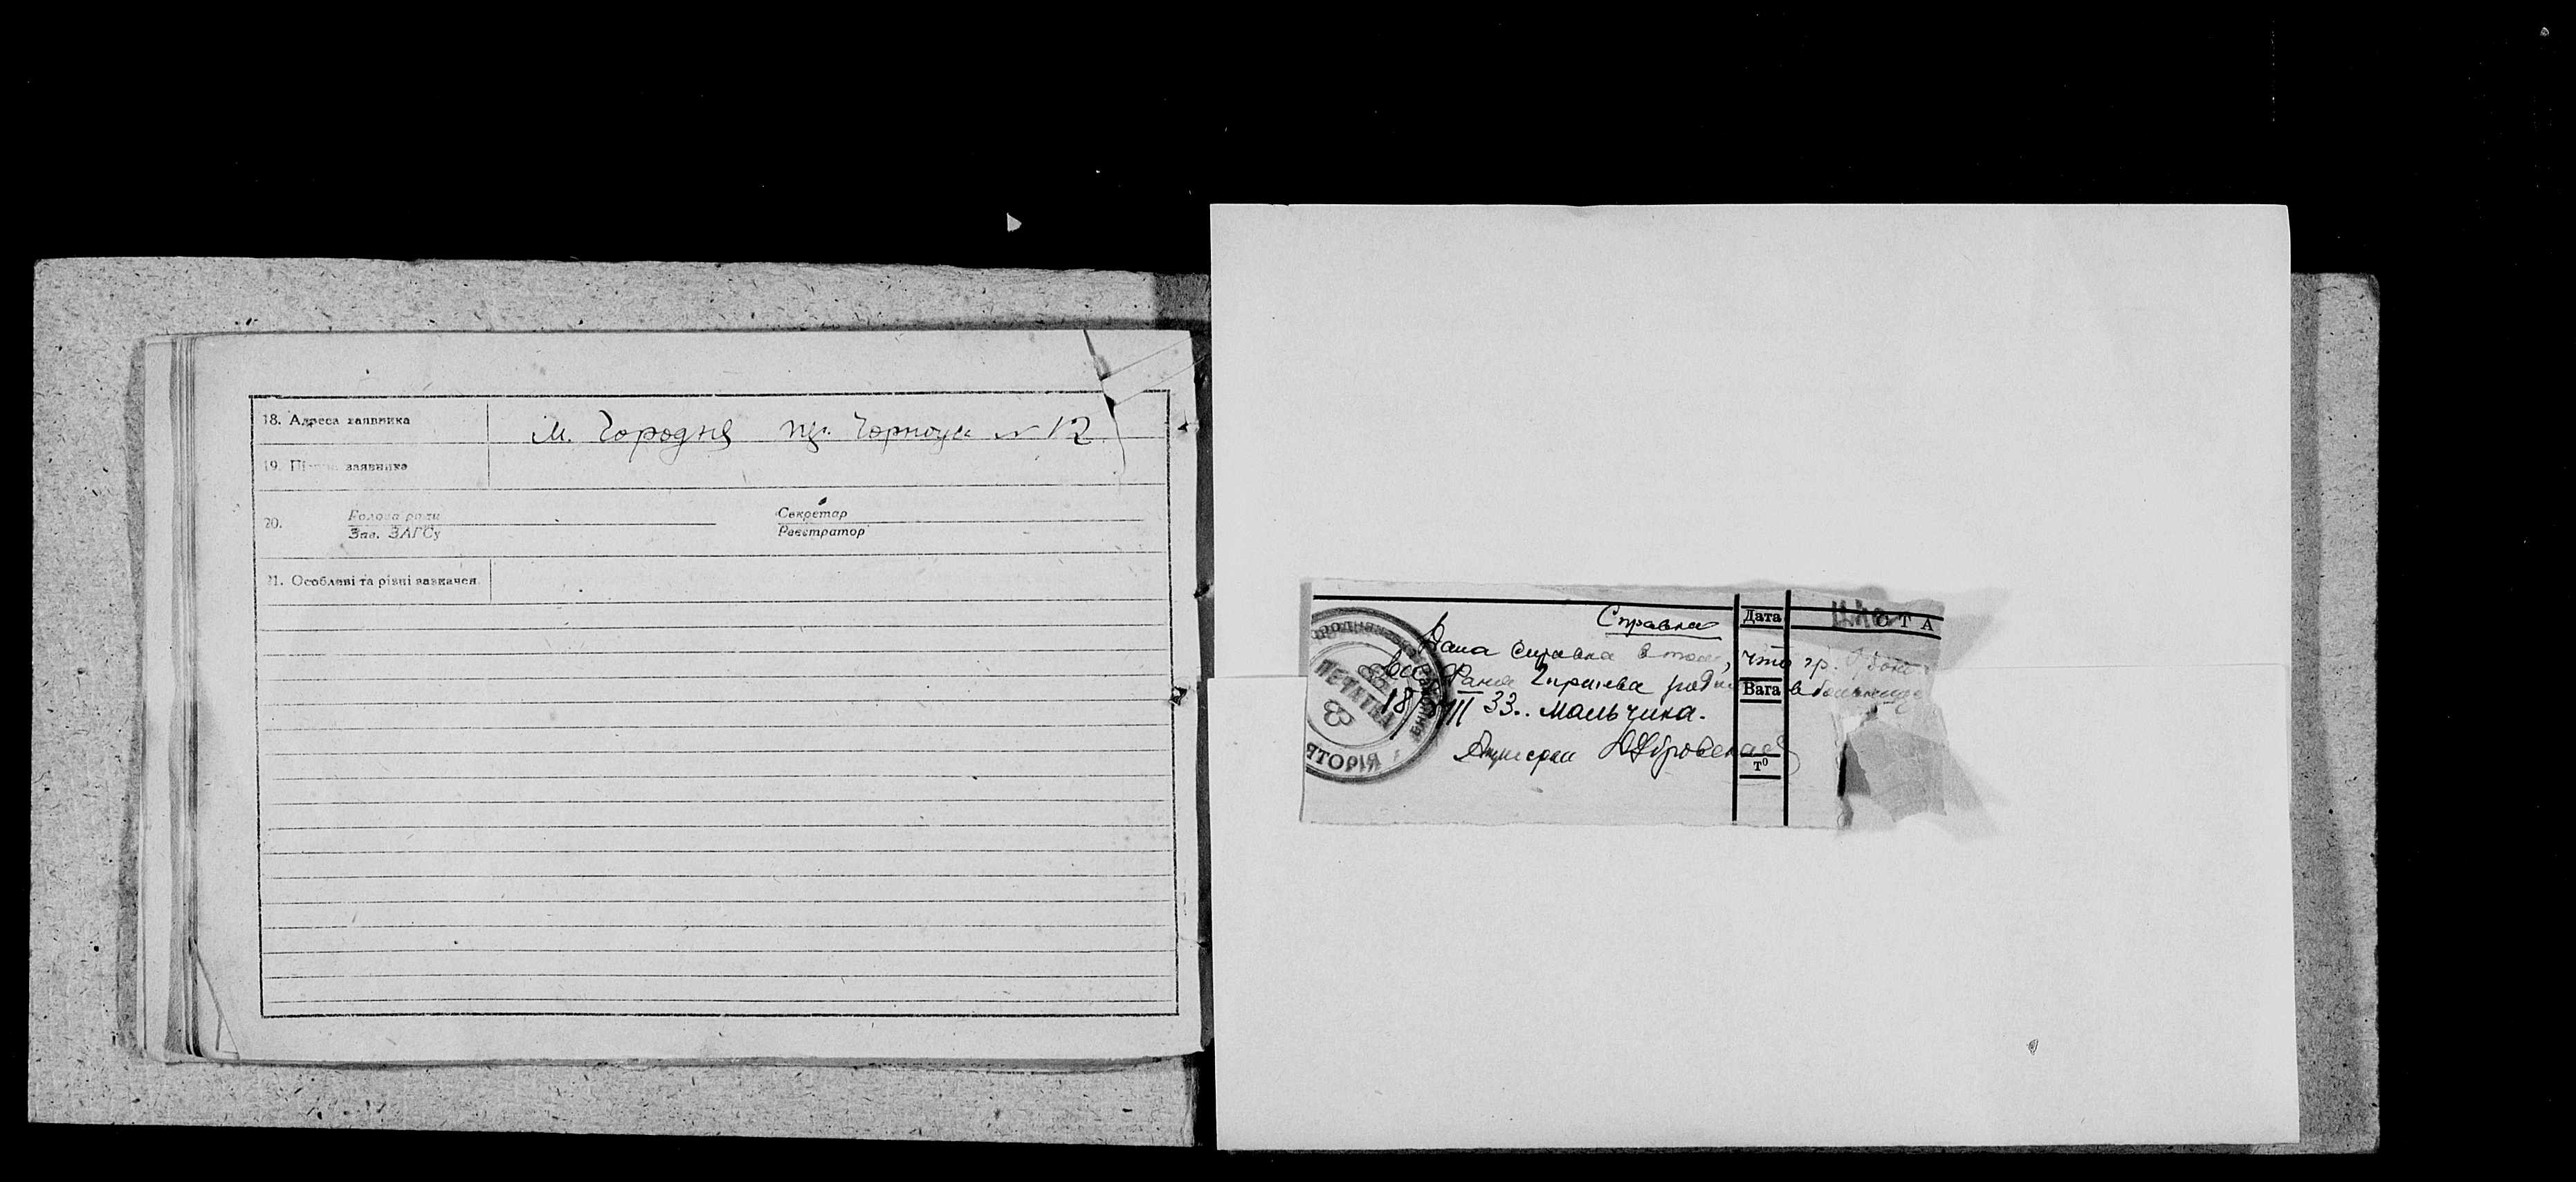 18. Адреса заявника
м. Городня вул. Чорноуса № 12.
19. Підпис заявника
20. Голова ради
Зав. ЗАГСу
Секретар
Реєстратор
21. Особливі та різні зазначен.
Справка
Дата
С Т А
Дана справка в том, что гр.
Фаня
Вага
в больнице
18 33. Мальчика.
Акушерка
т⁰
ПЕЧАТКА